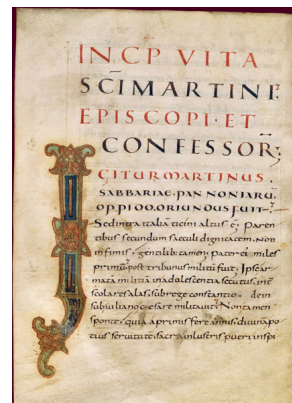 INCP VITA
SCI MARTINI
EPISCOPI · ET
CONFESSOR;
IGITUR MARTINUS.
SABBARIAE · PANNONIARŪ
OPPIDO, ORIUNDUS FUIT.
Sedintra italiā ticini altus ē; Paren
tibus secundum saeculi dignitatem, non
infimis, gentilib; tamen; pater ei miles
primū, post tribunus militū fuit; Ipse ar
matā militiā in adolescentia secutus, int
scolares alas, sub rege constantio, dein
sub iuliano cesare militavit; Non tamen
sponte, quia a primis fere annis, divinā po
tius servitutē, sacra inlustris pueri inspi